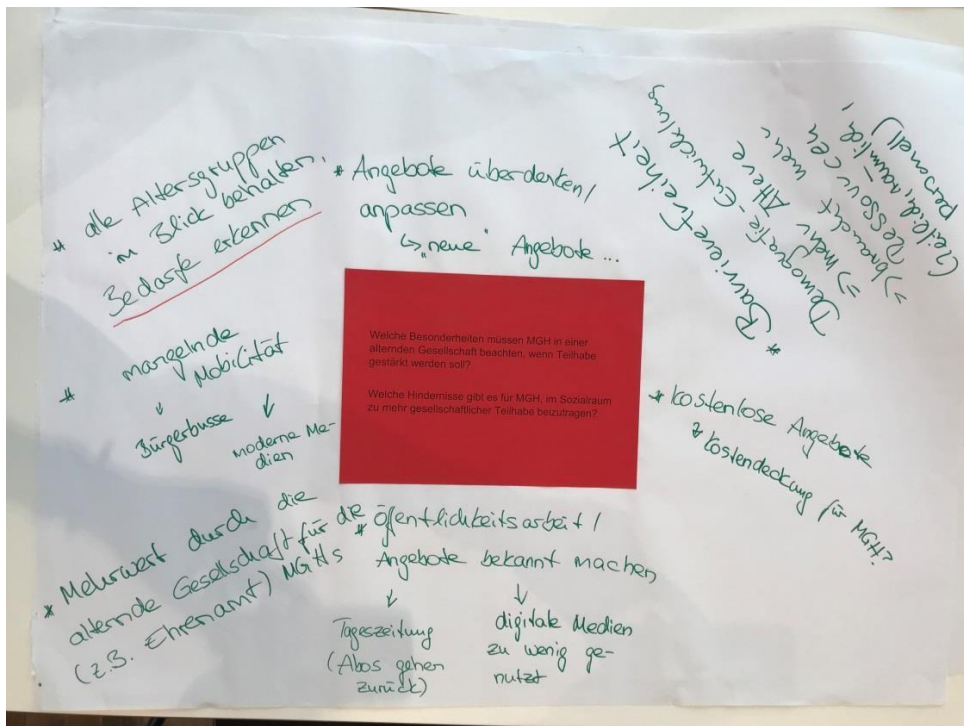 * alle Altersgruppen
im Blick behalten.
Bedarfe erkennen
* Angebote überdenken/
anpassen
↳ „neue" Angebote ...
* Barrierefreiheit
Demografie-Entwicklung
⇒ mehr Ältere
⇒ braucht mehr
Ressourcen
(zeitlich, räumlich,
personell)
* mangelnde
Mobilität
↓ Bürgerbusse
↓ moderne Me-
dien
Welche Besonderheiten müssen MGH in einer
alternden Gesellschaft beachten, wenn Teilhabe
gestärkt werden soll?
Welche Hindernisse gibt es für MGH, im Sozialraum
zu mehr gesellschaftlicher Teilhabe beizutragen?
* kostenlose Angebote
↳ Kostendeckung für MGH?
* Mehrwert durch die
alternde Gesellschaft für die
(z.B. Ehrenamt) MGHs
* öffentlichkeitsarbeit/
Angebote bekannt machen
↓
Tageszeitung
(Abos gehen
zurück)
↓
digitale Medien
zu wenig ge-
nutzt